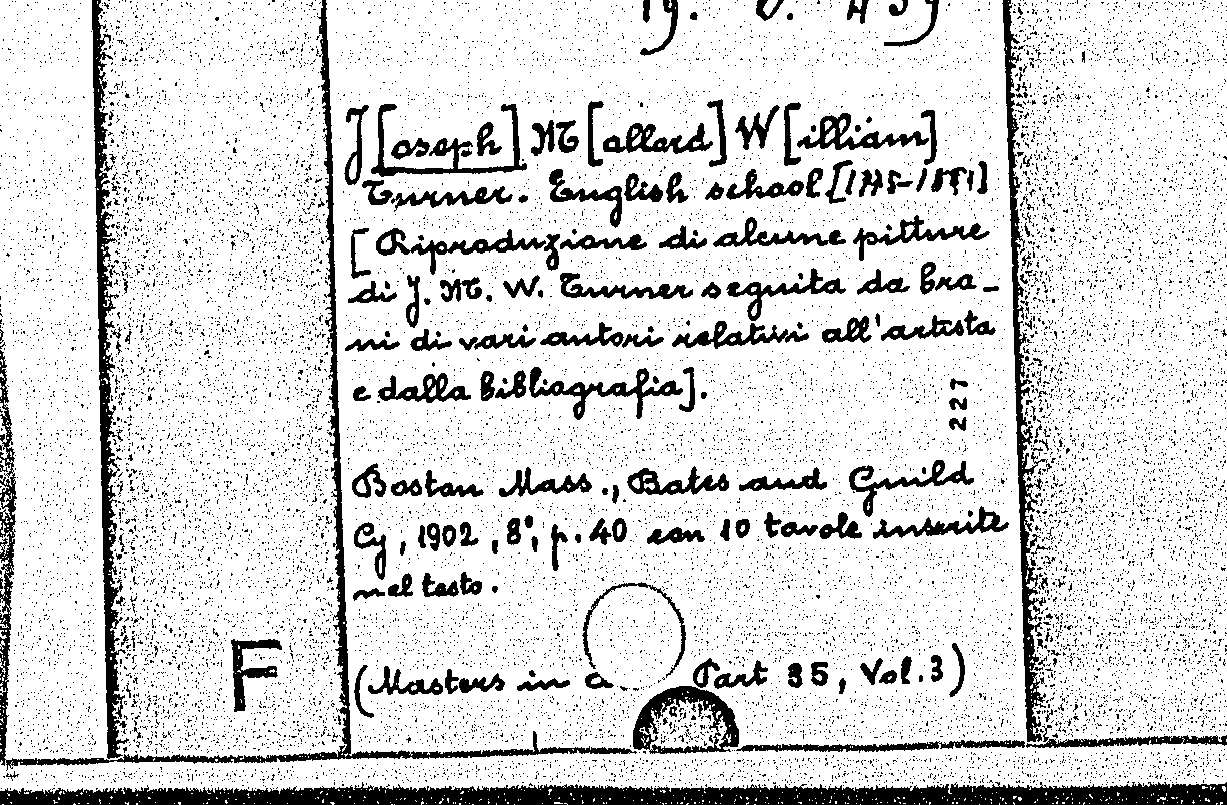 J[oseph] M[allord] W[illiam]
Turner. English school [1775-1851]
[Riproduzione di alcune pitture
di J. M. W. Turner seguita da bra-
ni di vari autori relativi all'artista
e dalla bibliografia].
227
Boston Mass., Bates and Guild
Cy, 1902, 8°, p. 40 con 10 tavole inserite
nel testo.
F
(Masters in Part 35, Vol. 3)